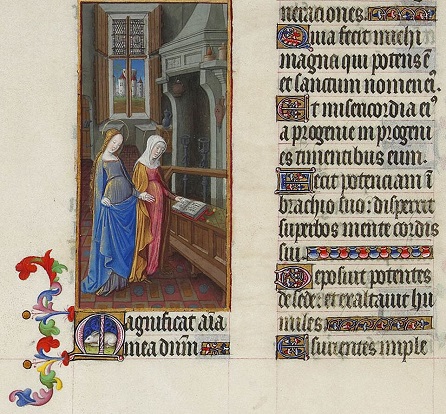 Magnificat aīa
mea dnūm
neraciones.
Quia fecit michi
magna qui potens ē
et sanctum nomen eiꝰ.
Et misericordia eiꝰ
a progenie in progeni
es timentibus eum.
Fecit potenciam ī
brachio suo: dispersit
superbos mente cordis
sui.
Deposuit potentes
de sede: et exaltauit hu
miles
Esurientes imple